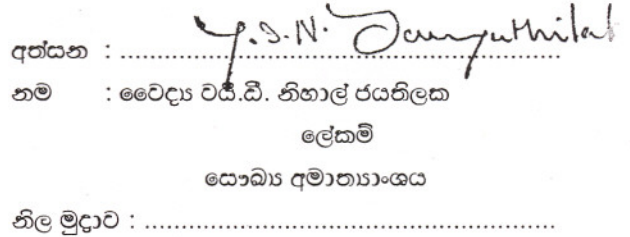 අත්සන : Y.D.N. Jayathilak
නම : වෛද්‍ය වයි.ඩී. නිහාල් ජයතිලක
ලේකම්
සෞඛ්‍ය අමාත්‍යාංශය
නිල මුද්‍රාව : ..........................................................